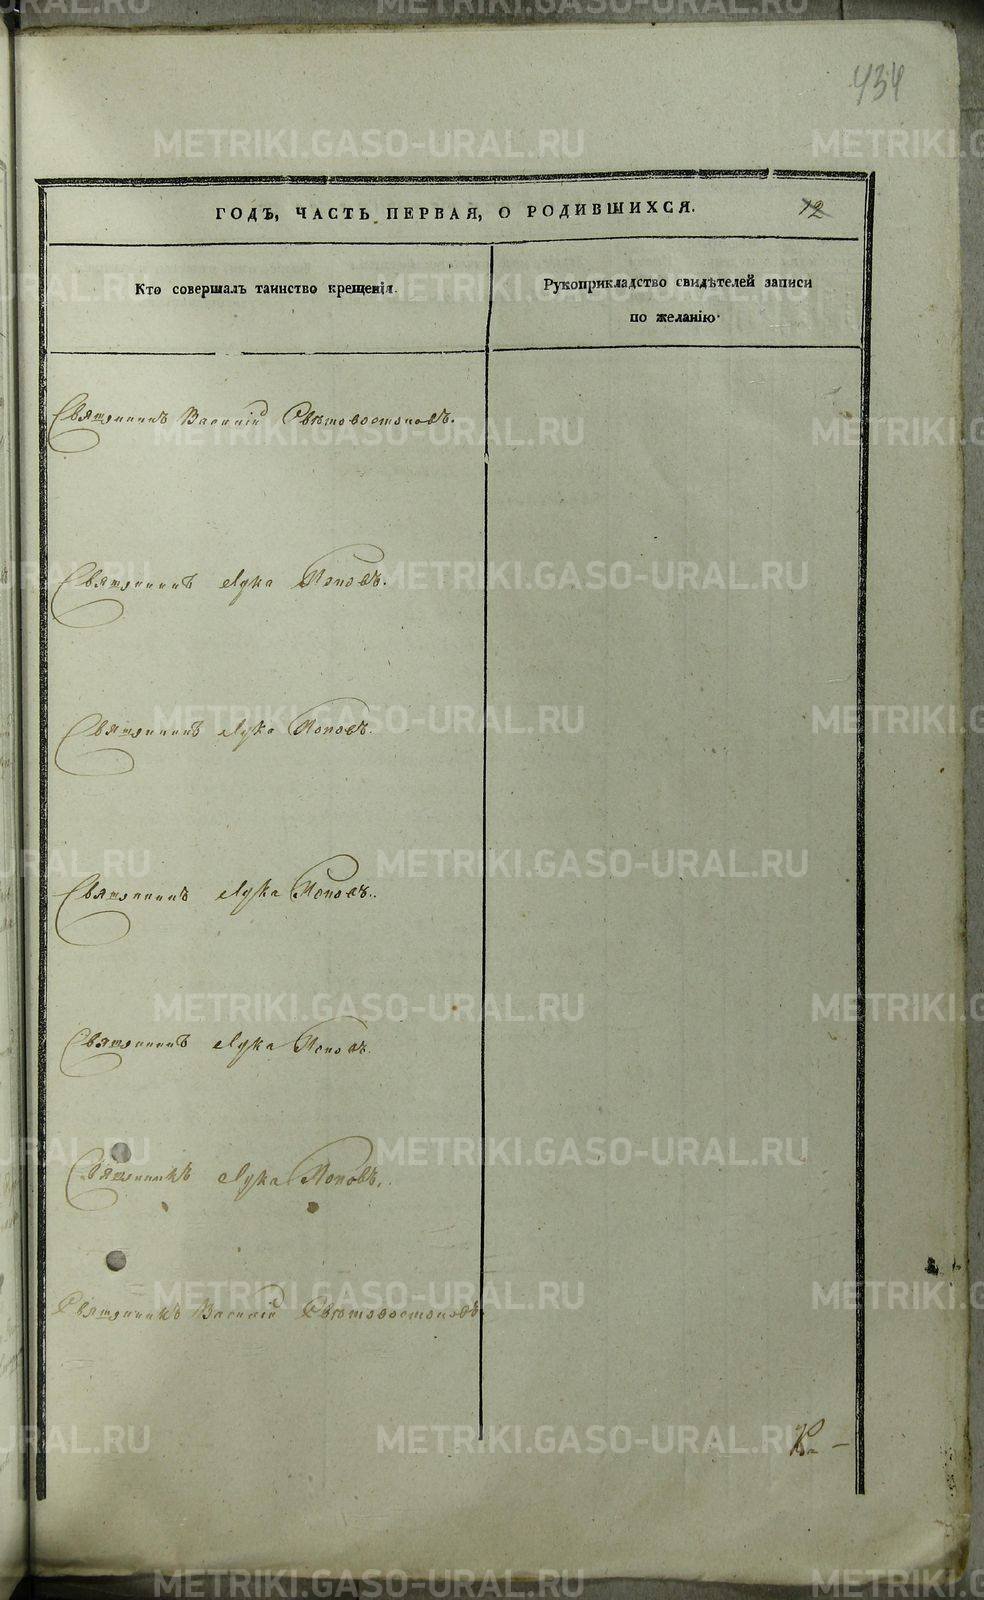 434
ГОДЪ, ЧАСТЬ ПЕРВАЯ, О РОДИВШИХСЯ. 12
Кто совершалъ таинство крещенія.
Рукоприкладство свидѣтелей записи
по желанію.
Священникъ Василій Свѣтовостоковъ.
Священникъ Лука Поповъ.
Священникъ Лука Поповъ.
Священникъ Лука Поповъ.
Священникъ Лука Поповъ.
Священникъ Лука Поповъ.
Священникъ Василій Свѣтовостоковъ.
METRIKI.GASO-URAL.RU